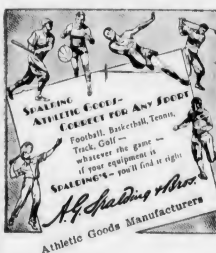 SPALDING
ATHLETIC GOODS—
CORRECT FOR ANY SPORT
Football, Basketball, Tennis,
Track, Golf —
whatever the game —
if your equipment is
SPALDING'S — you'll find it right
A.G. Spalding & Bros.
Athletic Goods Manufacturers